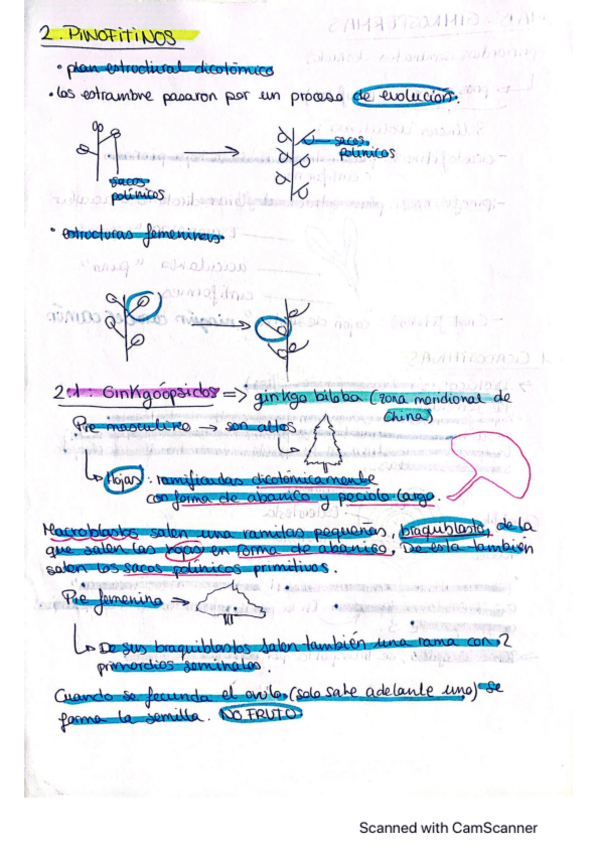 2. PINOFITINOS
• plan estructural dicotómico
• los estrambre pasaron por un proceso de evolución.
sacos
polínicos
sacos
polínicos
• estructuras femeninas
2.1: Ginkgoópsidos => ginkgo biloba (zona meridional de
China)
Pie masculino → son altos
Hojas: ramificadas dicotómicamente
con forma de abanico y peciolo largo.
Macroblastos salen una ramitas pequeñas, braquiblasto, de la
que salen las hojas en forma de abanico, De esta también
salen los sacos polínicos primitivos.
Pie femenino →
De sus braquiblastos salen también una rama con 2
primordios seminales.
Cuando se fecunda el ovulo (solo sale adelante uno) se
forma la semilla. NO FRUTO
Scanned with CamScanner